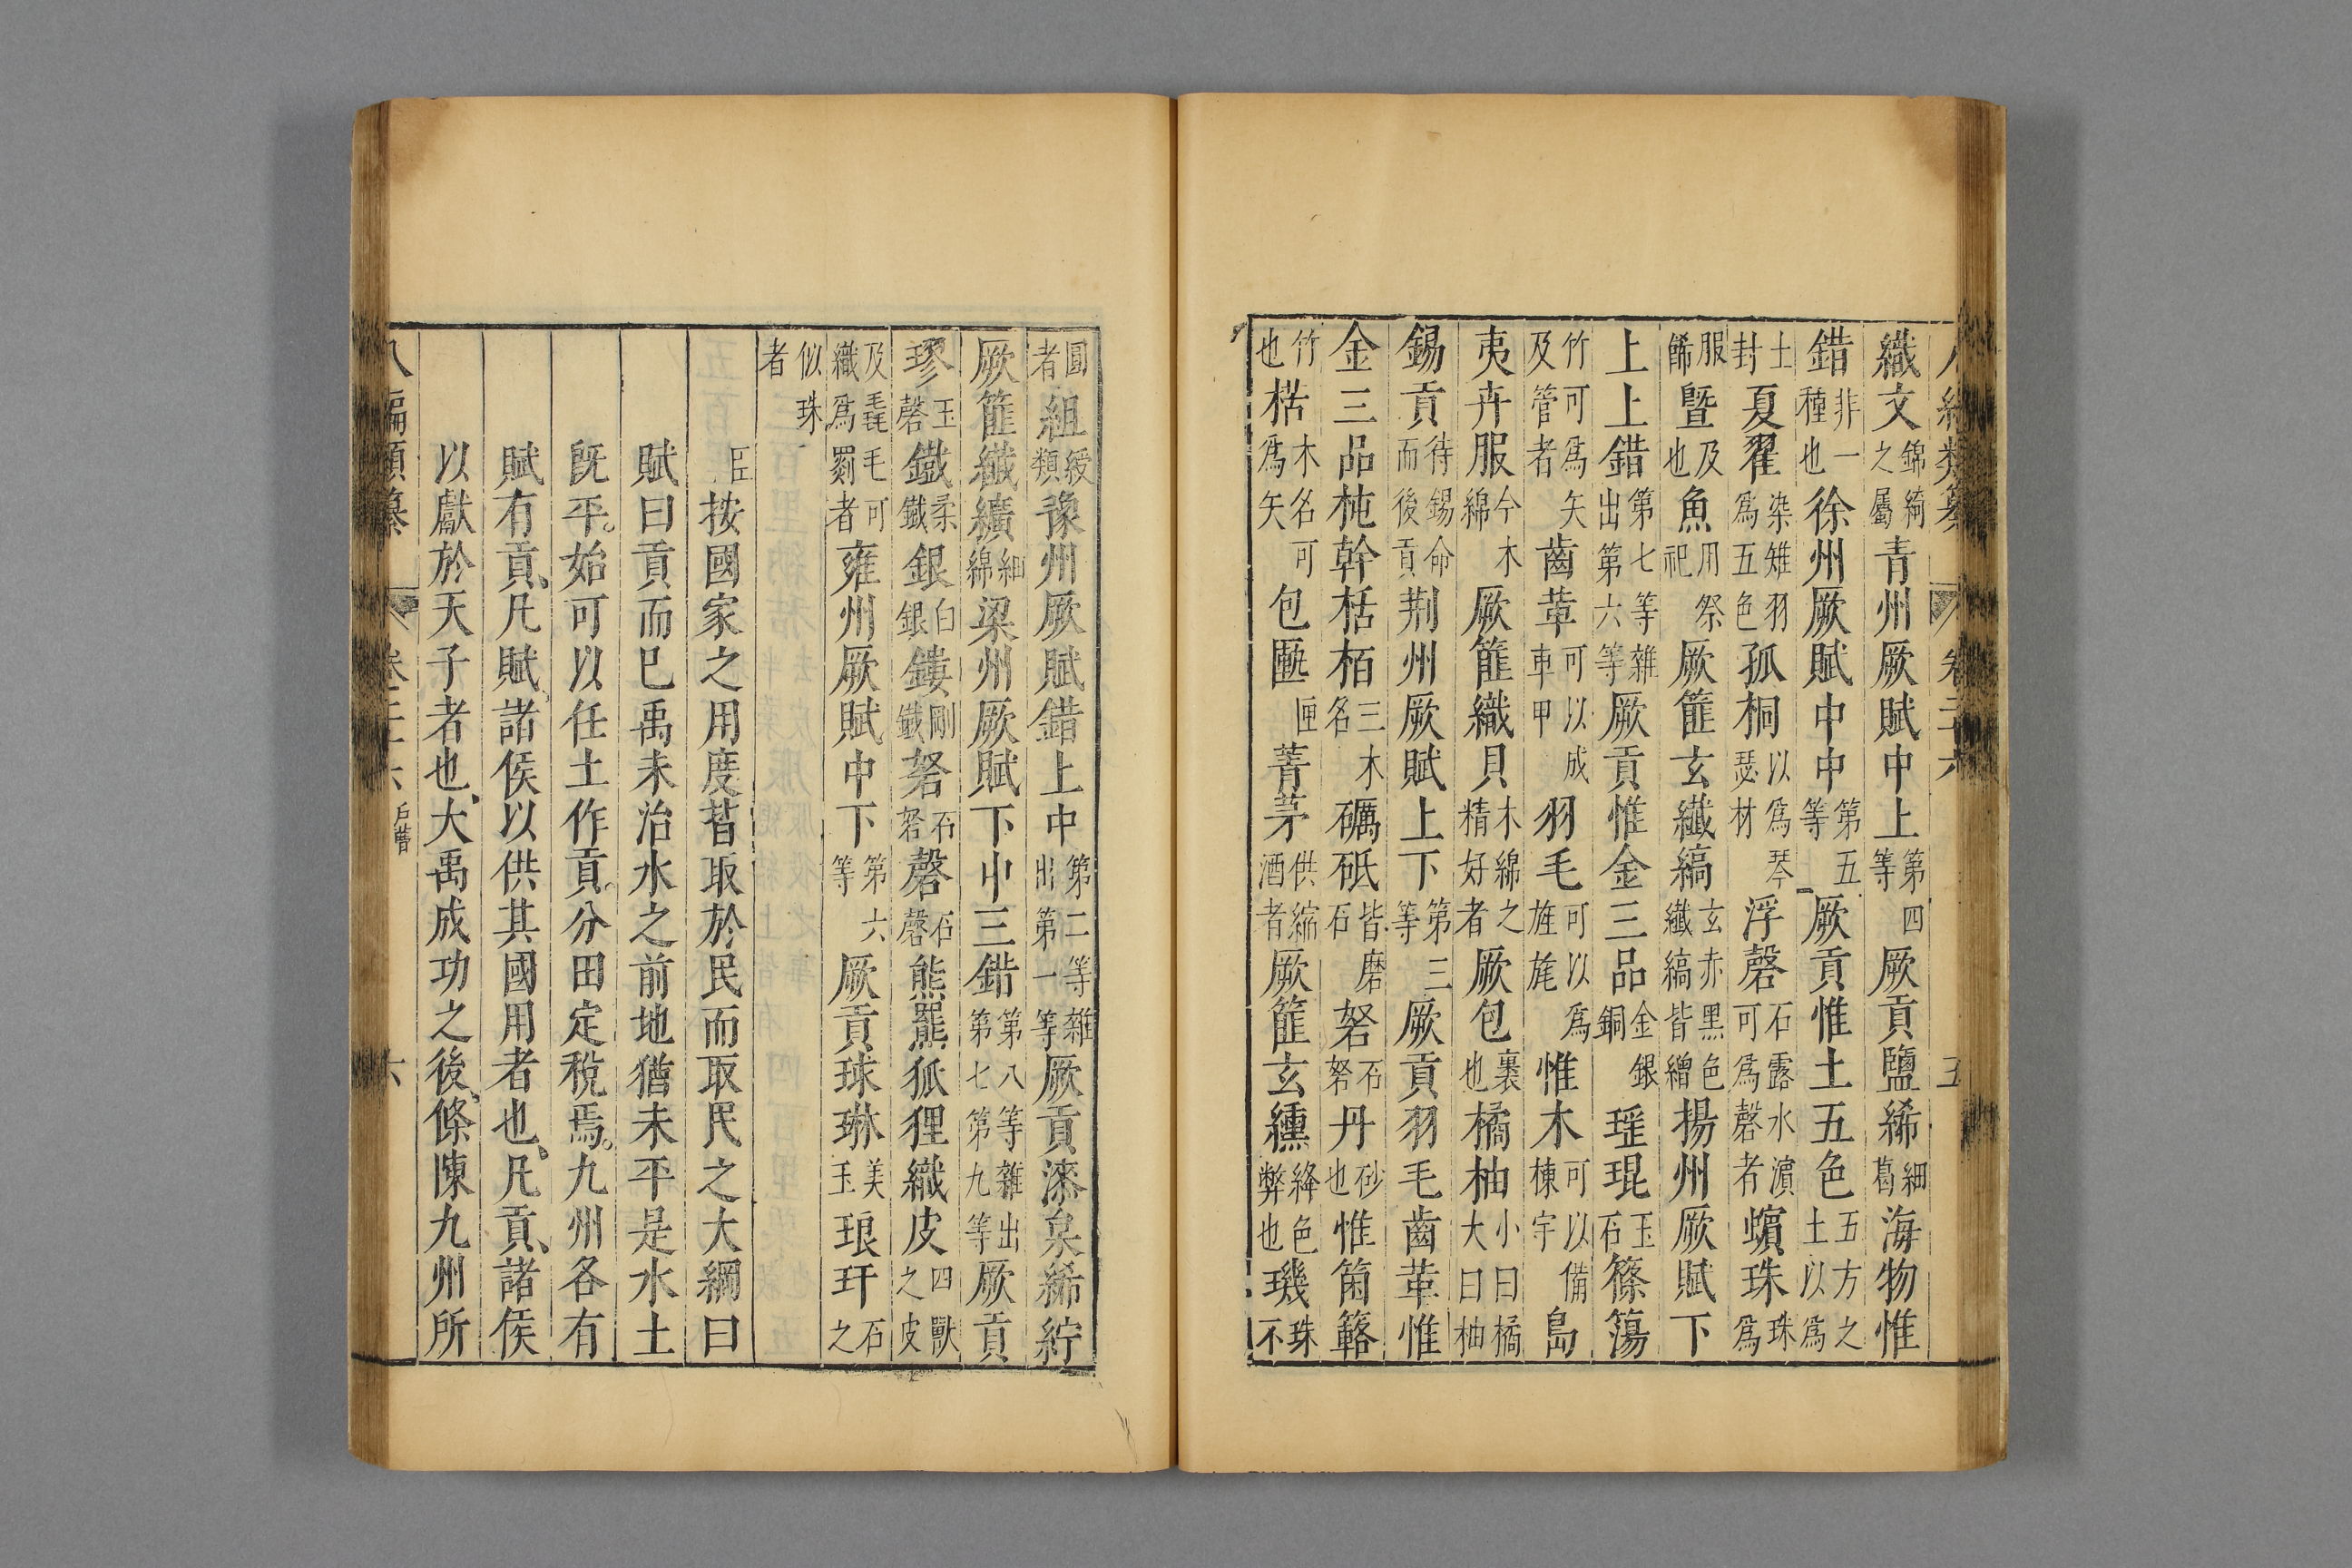 八編類纂 卷二十六 五
織文錦綺之屬青州厥賦中上第四等厥貢鹽絺細葛海物惟
錯非一種也徐州厥賦中中第五等厥貢惟土五色五方之土以爲
土封夏翟染雉羽爲五色孤桐以爲琴瑟材浮磬石露水濵可爲磬者蠙珠珠爲
服餙曁及也魚用祭祀厥篚玄纎縞玄赤黑色纎縞皆繒揚州厥賦下
上上錯第七等雜出第六等厥貢惟金三品金銀銅瑶琨玉石篠簜
竹可爲矢及管者齒革可以成車甲羽毛可以爲旌旄惟木可以備棟宇島
夷卉服今木綿厥篚織貝木綿之精好者厥包裹也橘柚小曰橘大曰柚
錫貢待錫命而後貢荆州厥賦上下第三等厥貢羽毛齒革惟
金三品杶幹栝栢三木名礪砥皆磨石砮石砮丹砂也惟箘簵
竹也楛木名可爲矢包匭匣菁茅供縮酒者厥篚玄纁絳色幣也璣珠不
圓者組綬類豫州厥賦錯上中第二等雜出第一等厥貢漆枲絺紵
厥篚纎纊細綿梁州厥賦下中三錯第八等雜出第七第九等厥貢
璆玉磬鐵柔鐵銀白銀鏤剛鐵砮石砮磬石磬熊羆狐狸織皮四獸之皮
及毳毛可織爲罽者雍州厥賦中下第六等厥貢球琳美玉琅玕石之
似珠者
臣按國家之用度皆取於民而取民之大綱曰
賦曰貢而巳禹未治水之前地猶未平是水土
旣平。始可以任土作貢。分田定稅焉。九州各有
賦有貢、凡賦、諸侯以供其國用者也、凡貢、諸侯
以獻於天子者也、大禹成功之後、條陳九州所
八編類纂 卷二十六 戶曹 六